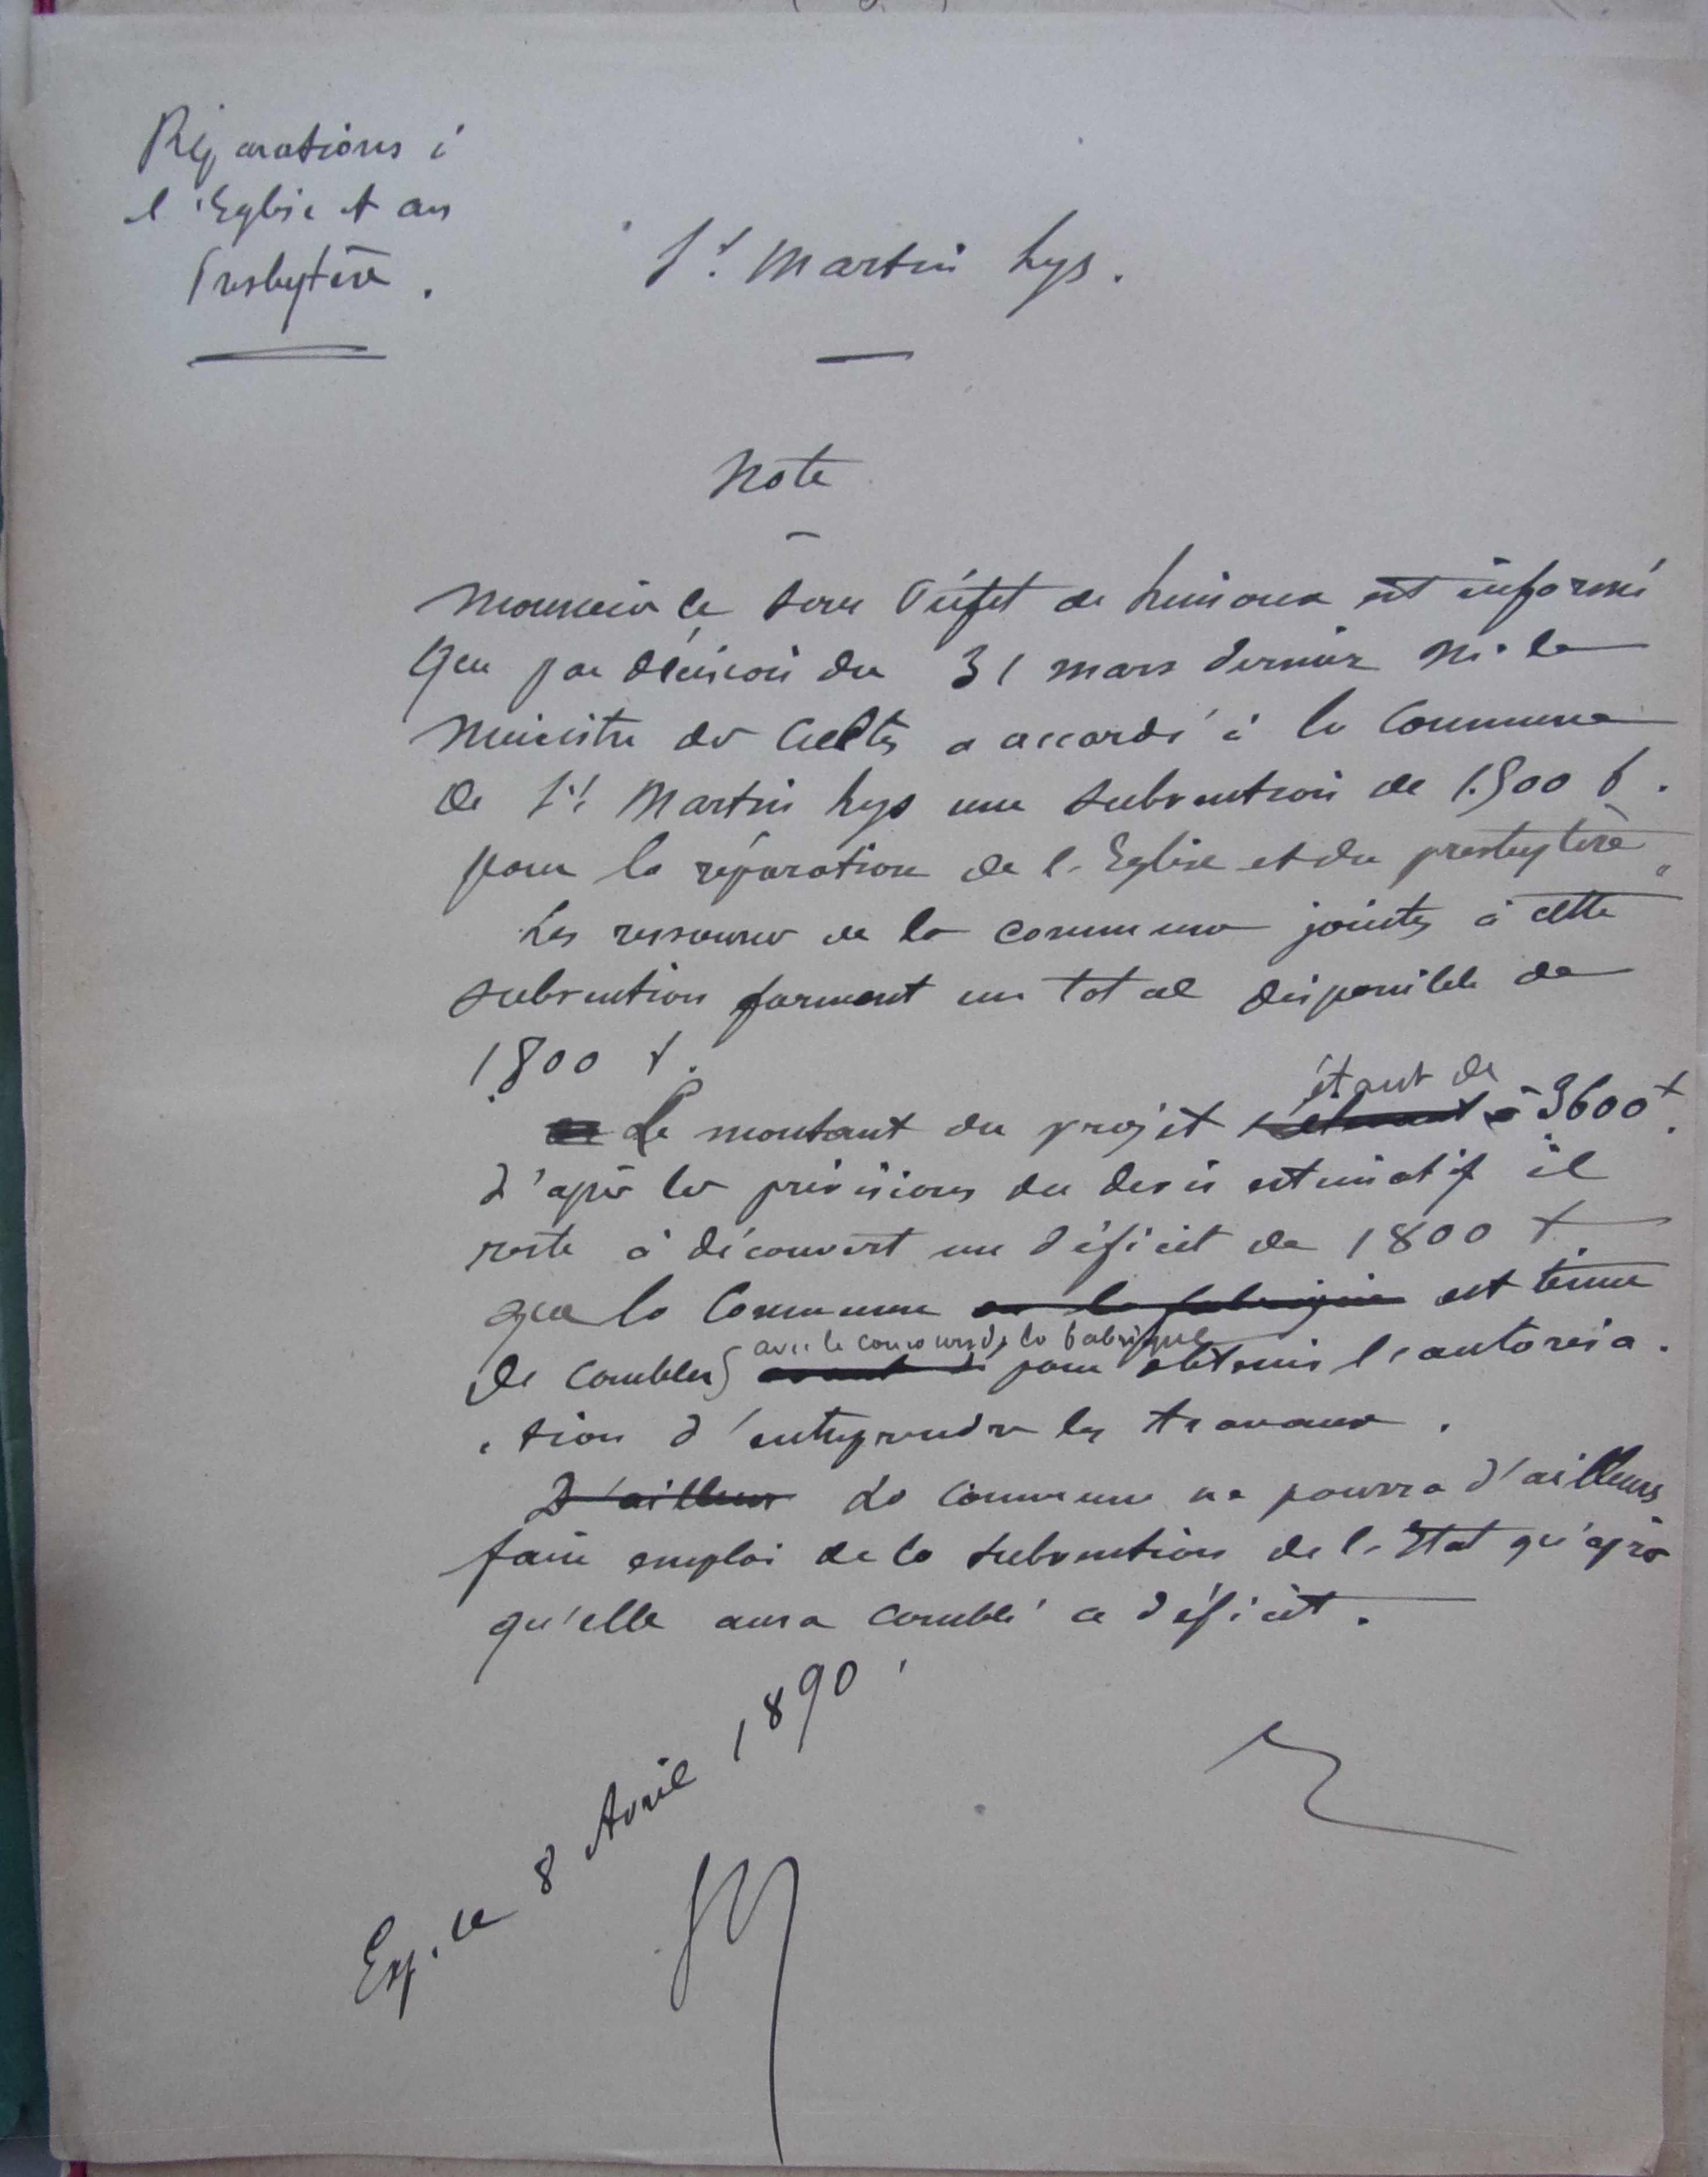 Réparations à
l'Eglise et au
Presbytère.
St Martin Lys.
Note
Monsieur le Sous Préfet de Limoux est informé
que par décision du 31 mars dernier M. le
Ministre des Cultes a accordé à la Commune
de St Martin Lys une subvention de 1.500 f.
pour la réparation de l'Eglise et du presbytère.
Les ressources de la commune jointes à cette
subvention forment un total disponible de
1800 f.
étant de
Le montant du projet s'élevant à 3600 f.
d'après les prévisions du devis estimatif il
reste à découvert un déficit de 1800 f.
que la Commune ou la fabrique est tenue
avec le concours de la fabrique
de combler pour obtenir l'autorisa-
tion d'entreprendre les travaux.
D'ailleurs La Commune ne pourra d'ailleurs
faire emploi de la subvention de l'Etat qu'après
qu'elle aura comblé ce déficit.
Exp. le 8 Avril 1890